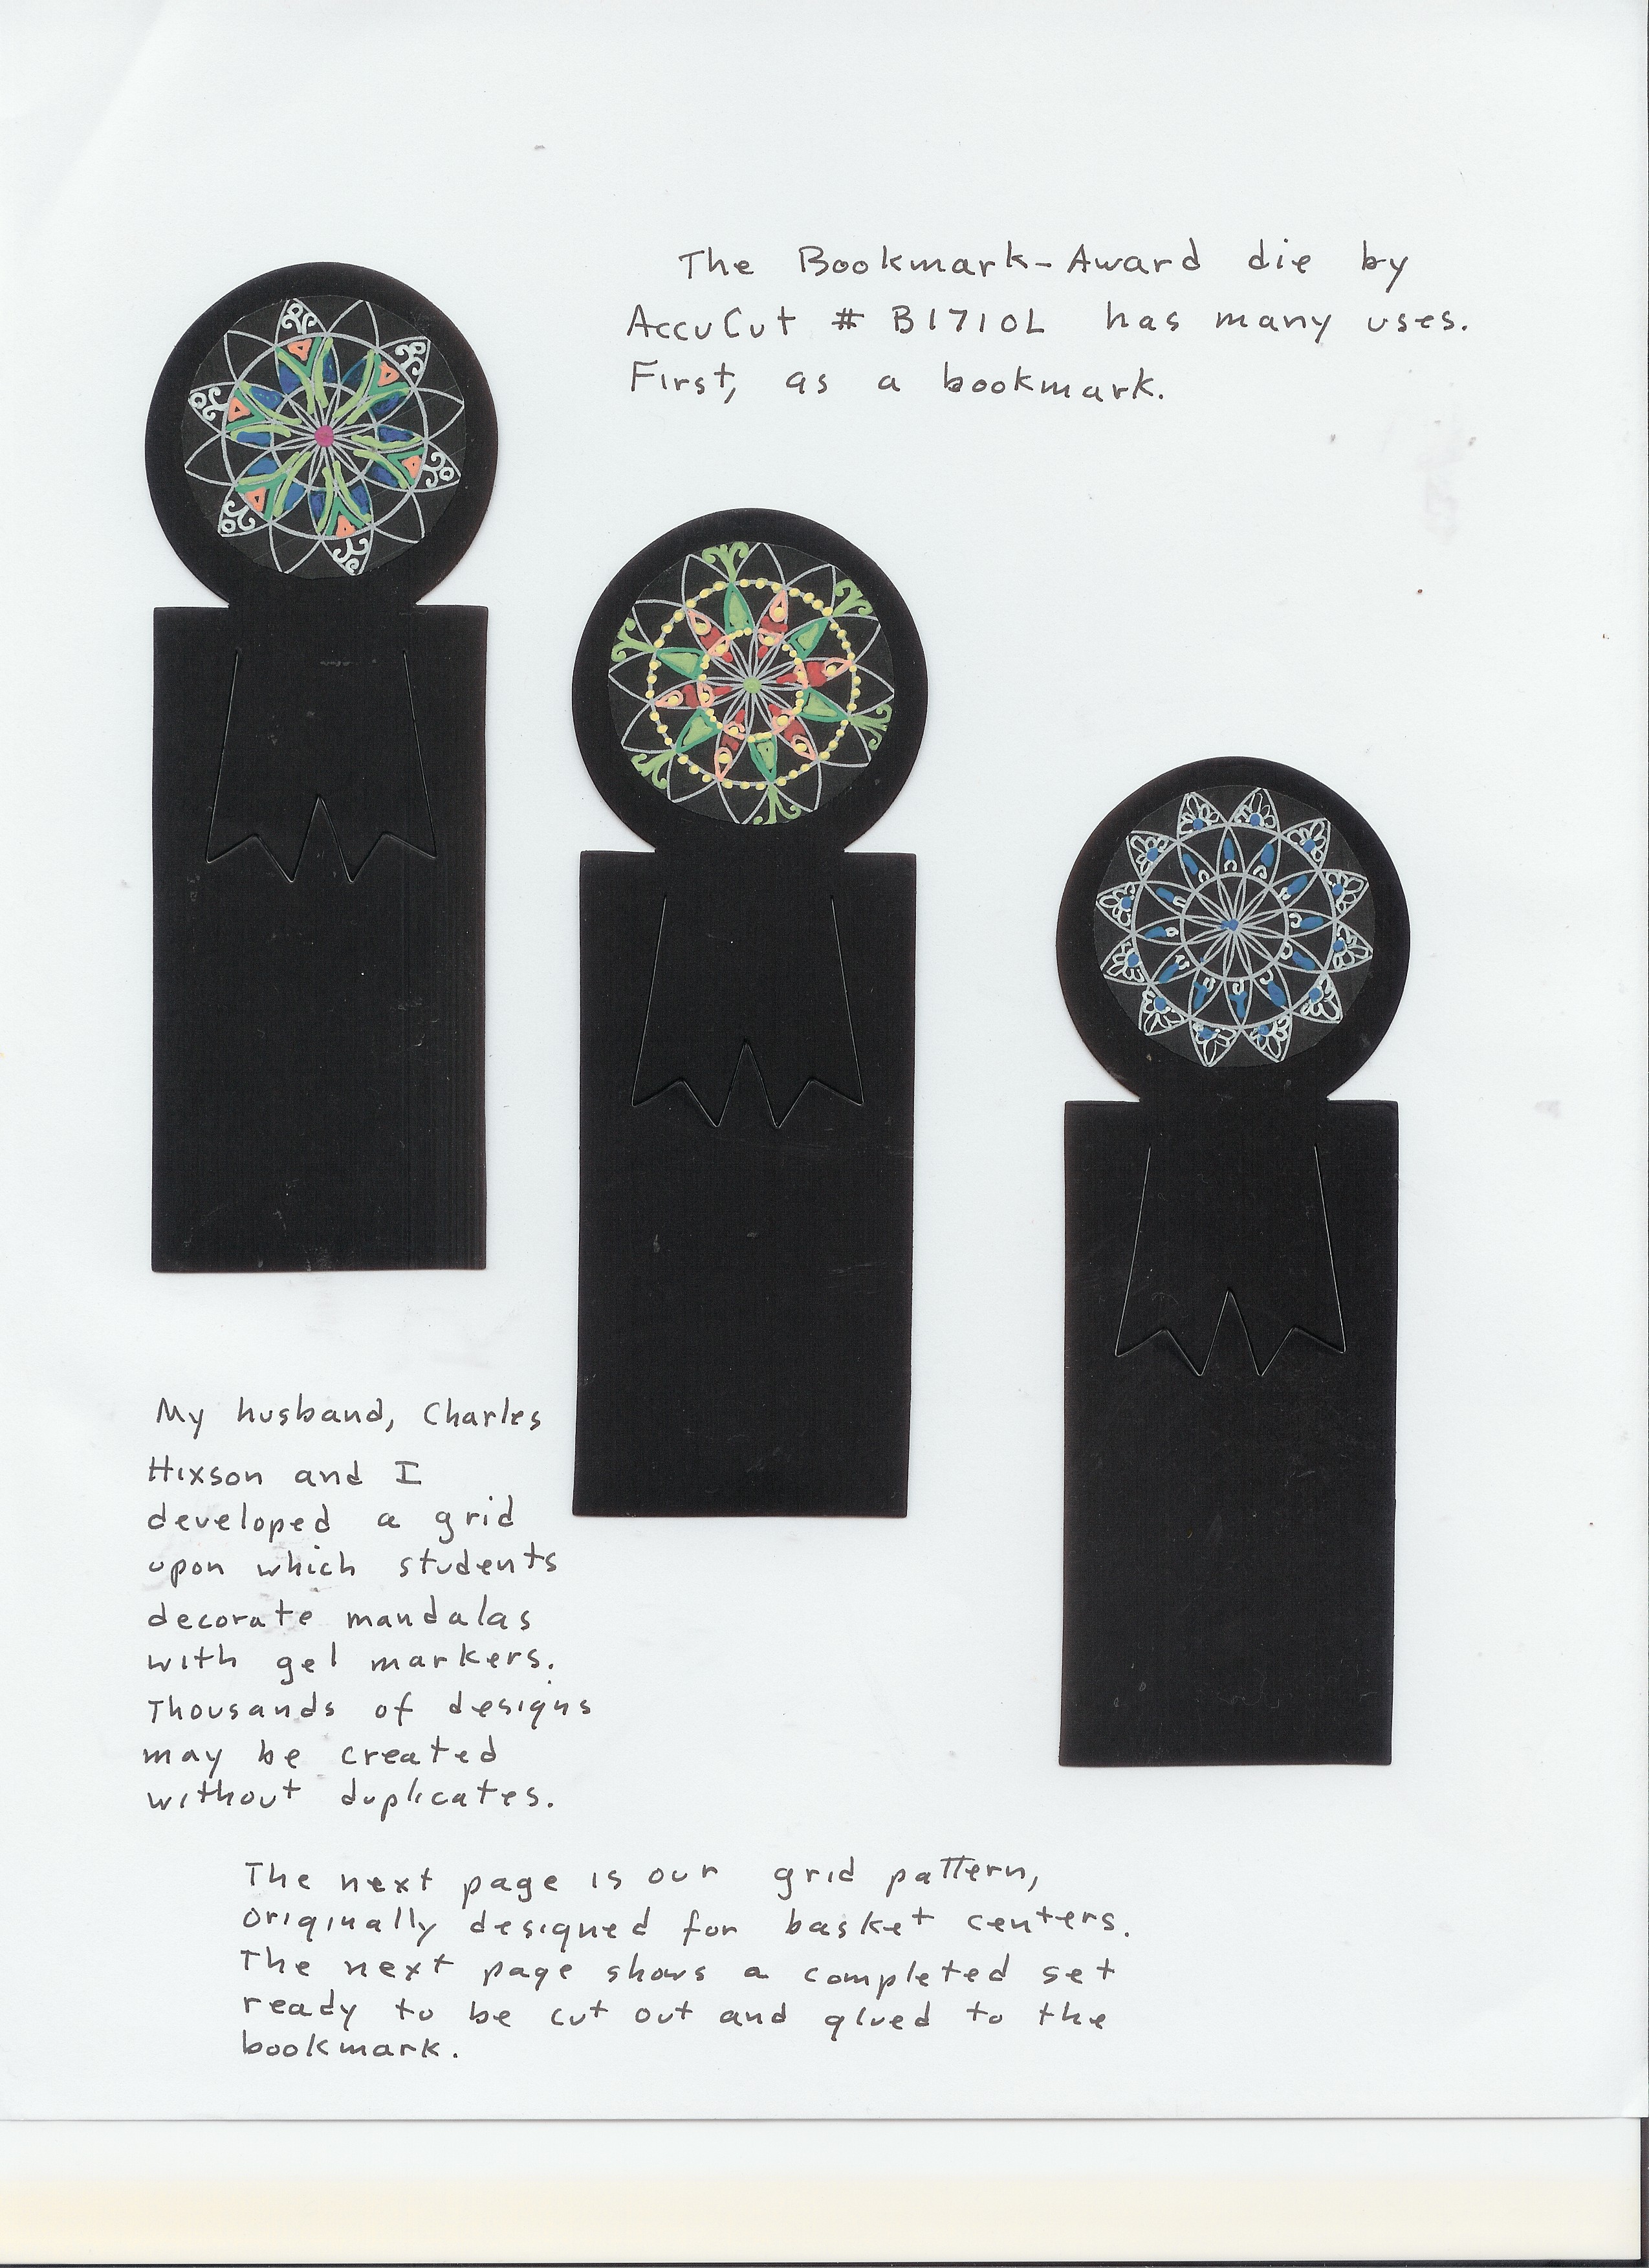 The Bookmark-Award die by
AccuCut # B1710L has many uses.
First, as a bookmark.
My husband, Charles
Hixson and I
developed a grid
upon which students
decorate mandalas
with gel markers.
Thousands of designs
may be created
without duplicates.
The next page is our grid pattern,
originally designed for basket centers.
The next page shows a completed set
ready to be cut out and glued to the
bookmark.